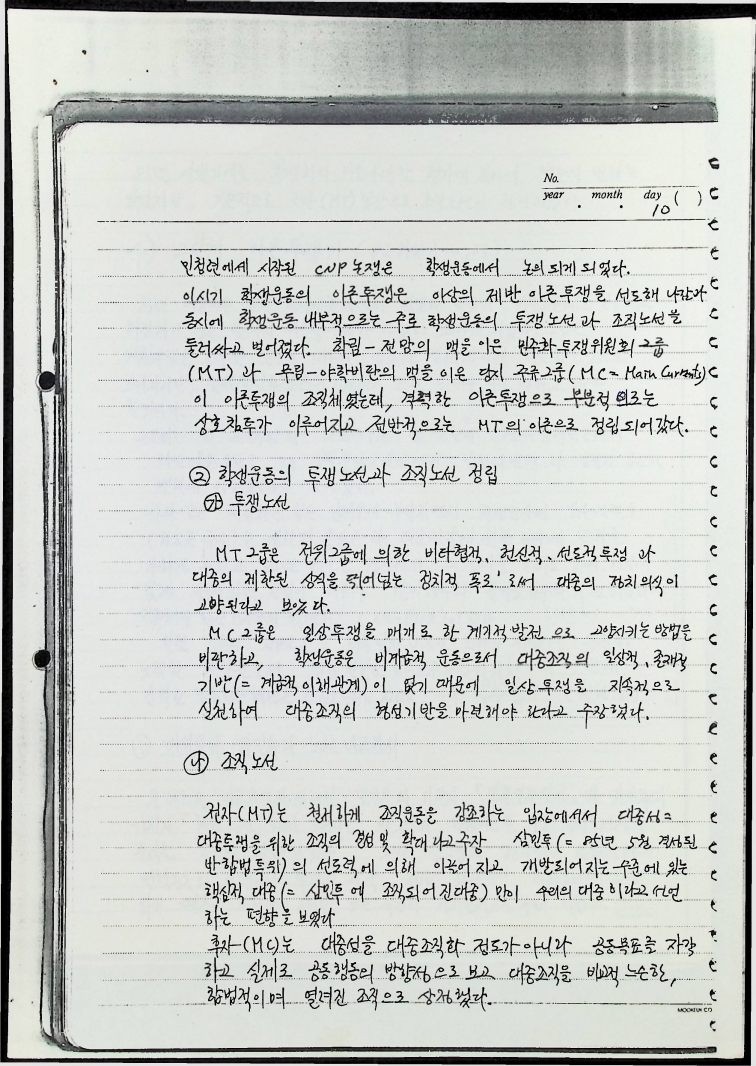 No.
year . month . day ( )
10
민청련에서 시작된 CNP 논쟁은 학생운동에서 논의 되게 되었다.
이시기 학생운동의 이론투쟁은 이상의 제반 이론투쟁을 선도해 나감과
동시에 학생운동 내부적으로는 주로 학생운동의 투쟁노선과 조직노선을
둘러싸고 벌어졌다. 학림-전망의 맥을 이은 민주화투쟁위원회 그룹
(MT)과 무림-야학비판의 맥을 이은 당시 주류그룹(MC=Main Currents)
이 이론투쟁의 조직체였는데, 격력한 이론투쟁으로 부분적으로는
상호침투가 이루어지고 전반적으로는 MT의 이론으로 정립되어갔다.
② 학생운동의 투쟁노선과 조직노선 정립
㉮ 투쟁노선
MT그룹은 전위그룹에 의한 비타협적, 헌신적, 선도적투쟁과
대중의 제한된 상식을 뛰어넘는 정치적 폭로'로써 대중의 정치의식이
고양된다고 보았다.
MC그룹은 일상투쟁을 매개로 한 계기적 발전으로 고양시키는 방법을
비판하고, 학생운동은 비계급적 운동으로서 대중조직의 일상적, 존재적
기반(=계급적 이해관계)이 없기 때문에 일상투쟁을 지속적으로
실천하여 대중조직의 형성기반을 마련해야 한다고 주장했다.
㉯ 조직노선
전자(MT)는 철저하게 조직운동을 강조하는 입장에서서 대중성=
대중투쟁을 위한 조직의 결성 및 확대라고 주장 삼민투(=85년 5월 결성된
반합법특위)의 선도력에 의해 이끌어지고 개발되어지는 수준에 있는
핵심적 대중(=삼민투에 조직되어진대중)만이 우리의 대중이라고 선언
하는 편향을 보였다
후자(MC)는 대중성을 대중조직화 정도가 아니라 공동목표를 자각
하고 실제로 공동행동의 방향성으로 보고 대중조직을 비교적 느슨한,
합법적이며 열려진 조직으로 상정했다.
MOOKEUK CO